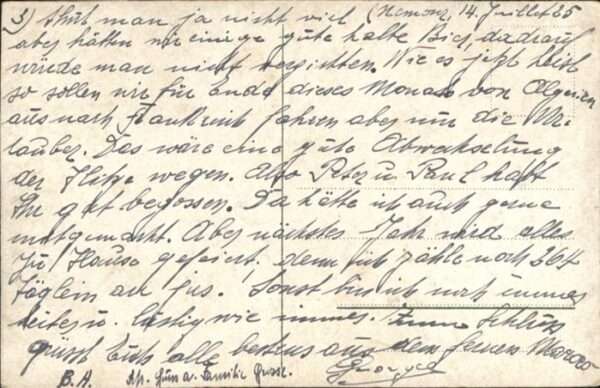 3) Thut man ja nicht viel (Nemonz, 14. Juillet 35
aber hätten wir einige gute kalte Bier, dadrauf
würde man nicht verzichten. Wie es jetzt heist
so sollen wir für Ende dieses Monats von Algerien
aus nach Frankreich fahren aber nur die
lauber. Das wäre eine gute Abwechselung
der Hitze wegen. Also Peter u Paul habt
Ihr gut begossen. Da hätte ich auch gerne
mitgemacht. Aber nächstes Jahr wird alles
zu Hause gefeiert. denn ich zähle noch 264
Täglein au jus. Sonst bin ich noch immer
heiter u. lustig wie immer. zum Schluss
grüsst Euch alle bestens aus dem fernen Maroco
B.H. u. Familie Grüsse. George